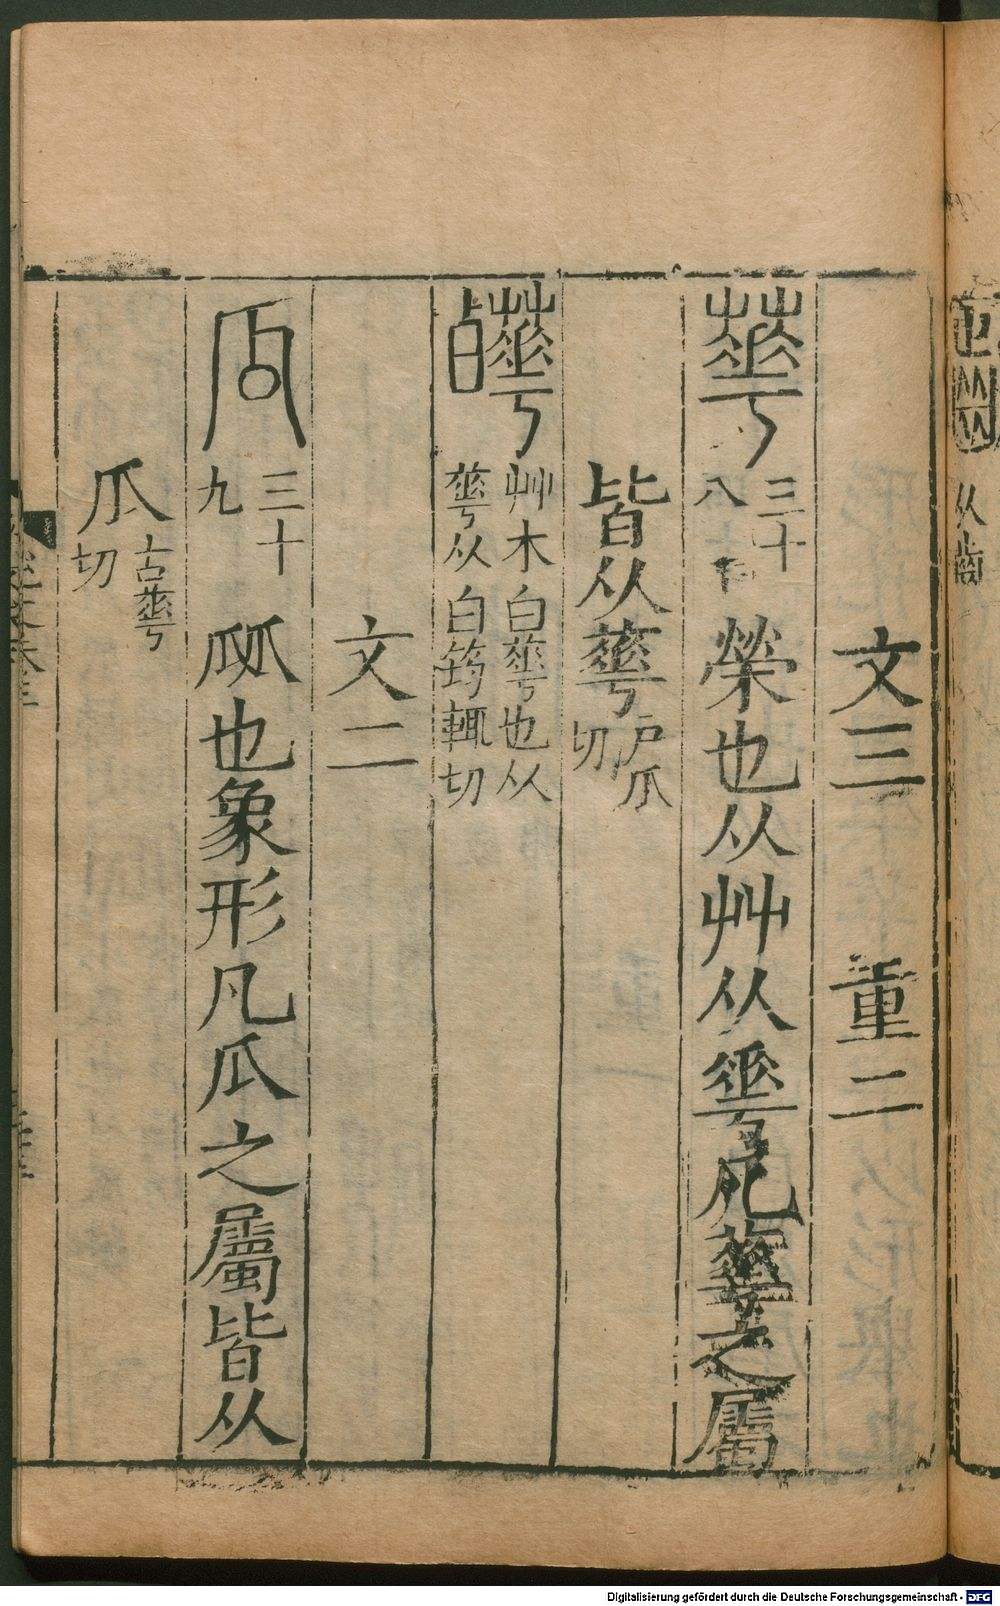 从齒
文三 重二
華 三十八 榮也从艸从𠌶凡華之屬
皆从華 戸瓜切
皣 艸木白華也从華从白筠輒切
文二
瓜 三十九 㼌也象形凡瓜之屬皆从
瓜 古華切
Digitalisierung gefördert durch die Deutsche Forschungsgemeinschaft - DFG